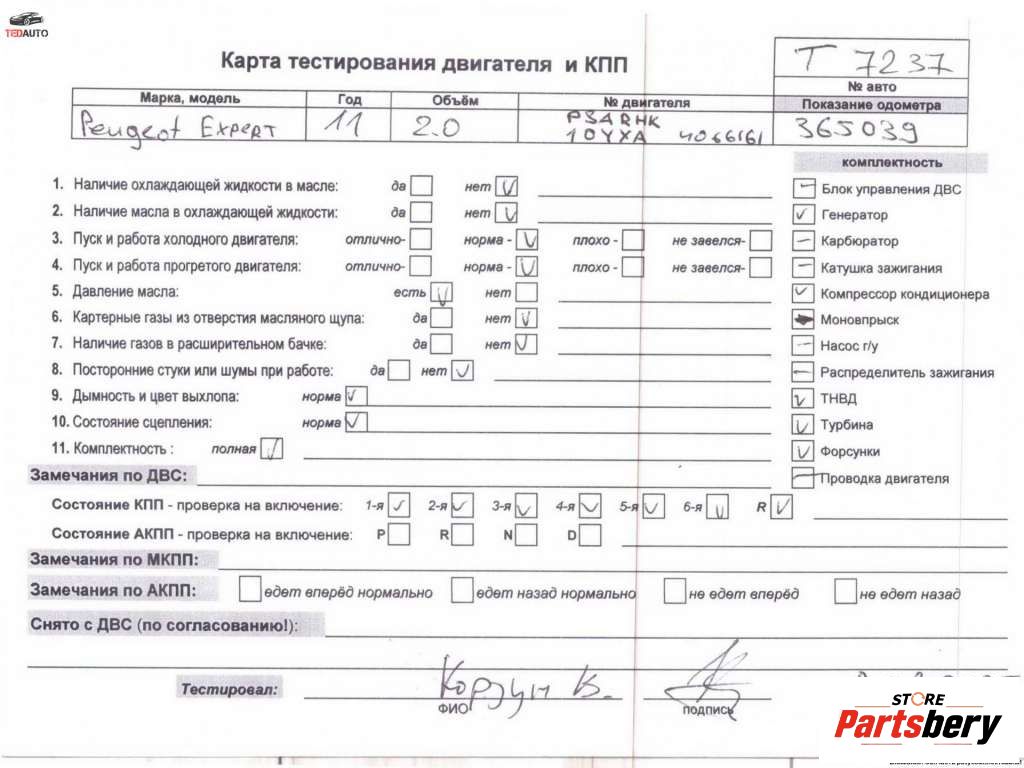 TEDAUTO
Карта тестирования двигателя и КПП
T 7237
№ авто
Марка, модель Год Объём № двигателя Показание одометра
Peugeot Expert 11 2.0 PSARHK 365039
10YXA 4066161
комплектность
1. Наличие охлаждающей жидкости в масле: да нет Блок управления ДВС
2. Наличие масла в охлаждающей жидкости: да нет Генератор
3. Пуск и работа холодного двигателя: отлично- норма - плохо - не завелся- Карбюратор
4. Пуск и работа прогретого двигателя: отлично- норма - плохо - не завелся- Катушка зажигания
5. Давление масла: есть нет Компрессор кондиционера
6. Картерные газы из отверстия масляного щупа: да нет Моновпрыск
7. Наличие газов в расширительном бачке: да нет Насос г/у
8. Посторонние стуки или шумы при работе: да нет Распределитель зажигания
9. Дымность и цвет выхлопа: норма ТНВД
10. Состояние сцепления: норма Турбина
11. Комплектность : полная Форсунки
Замечания по ДВС: Проводка двигателя
Состояние КПП - проверка на включение: 1-я 2-я 3-я 4-я 5-я 6-я R
Состояние АКПП - проверка на включение: P R N D
Замечания по МКПП:
Замечания по АКПП: едет вперёд нормально едет назад нормально не едет вперёд не едет назад
Снято с ДВС (по согласованию!):
Тестировал: Корзун В.
ФИО подпись
STORE
Partsbery